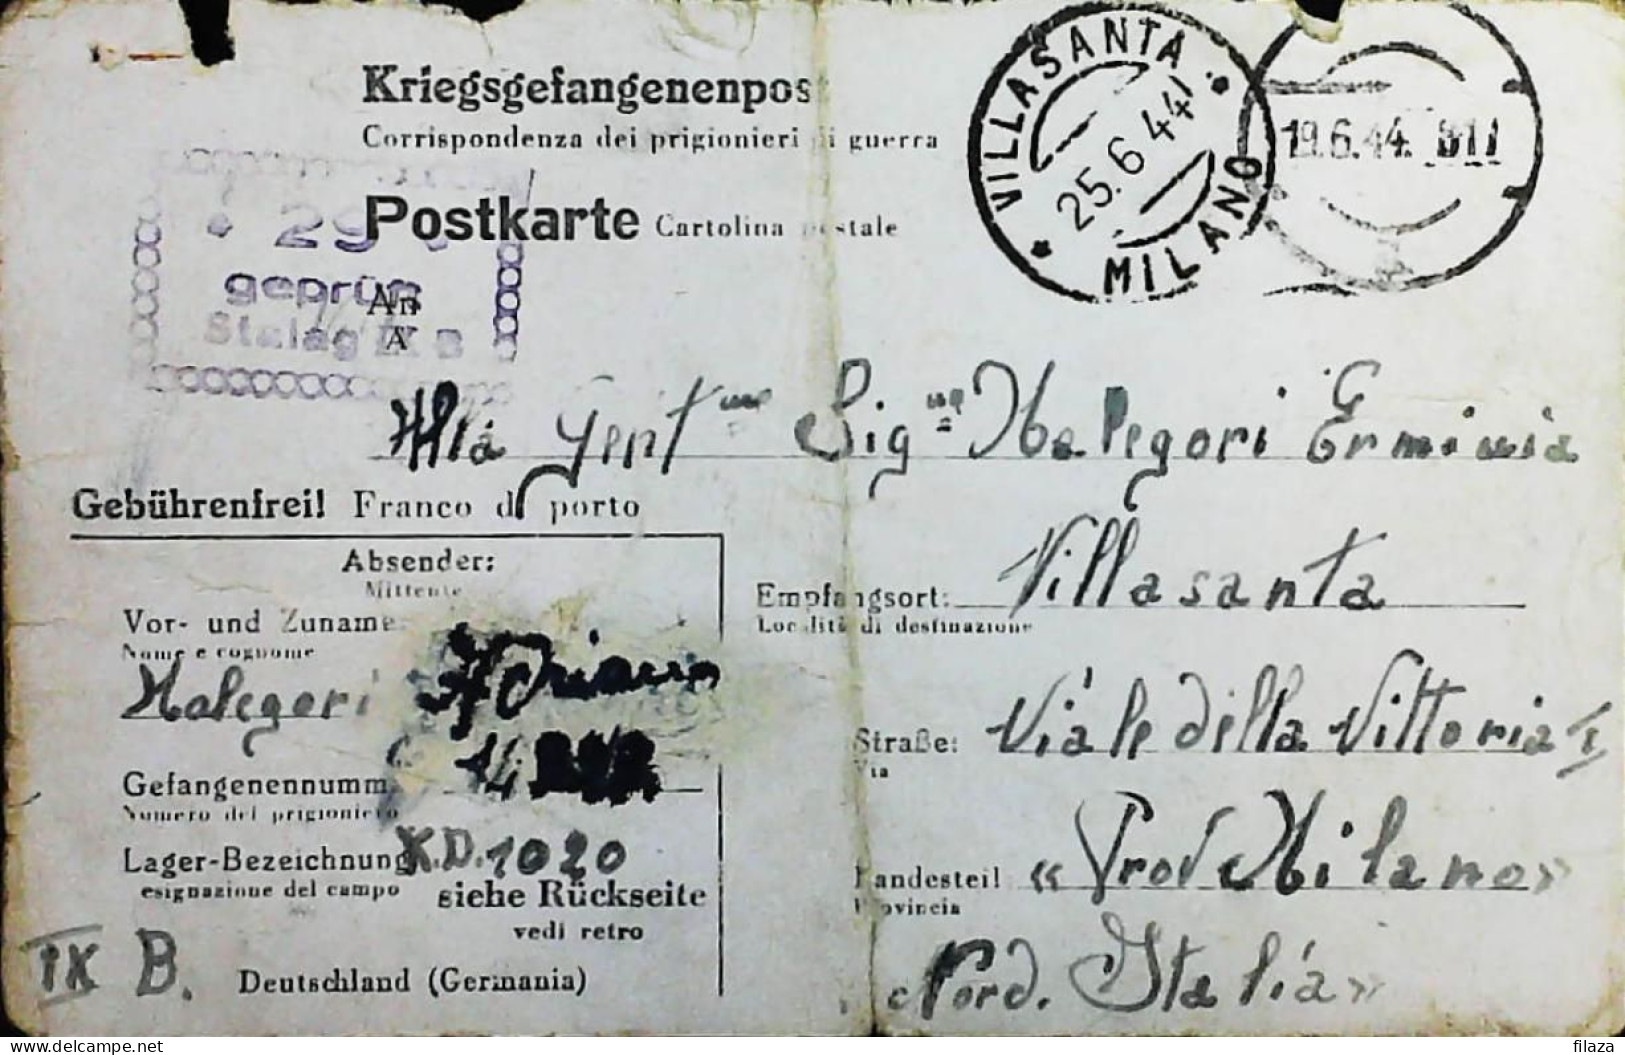 Kriegsgefangenenpos
Corrispondenza dei prigionieri di guerra
Postkarte Cartolina postale
VILLASANTA
25.6.44
MILANO
19.6.44.
29
geprüft
Stalag IX B
An
A
Alla Gent me Sig na Malegori Erminia
Gebührenfrei! Franco di porto
Absender:
Mittente
Vor- und Zuname
Nome e cognome
Malegori Adriano
Gefangenennumm
Numero del prigioniero
14
Lager-Bezeichnung K.D. 1020
esignazione del campo
siehe Rückseite
vedi retro
IX B.
Deutschland (Germania)
Empfangsort: Villasanta
Località di destinazione
Straße: Viale della Vittoria I
Via
Landesteil « Prov Milano »
Provincia
« Nord. Italia »
delcampe.net
filaza